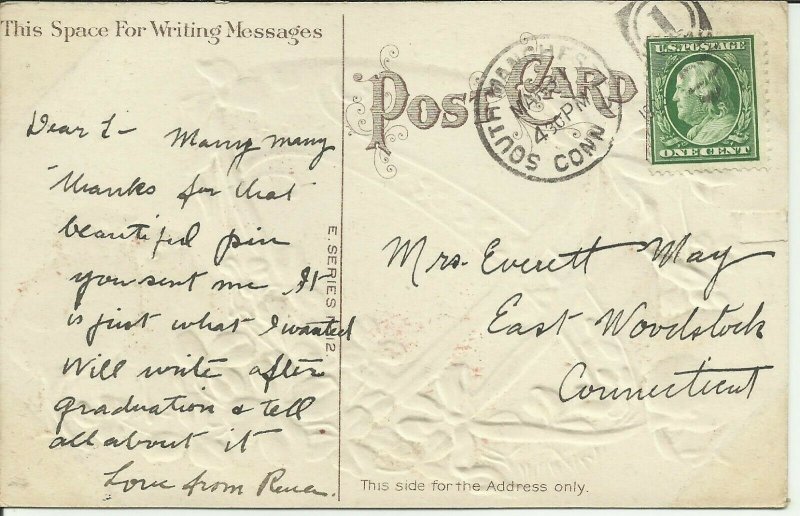 This Space For Writing Messages
POST CARD
SOUTH MANCHESTER CONN
4 30 PM
U.S. POSTAGE
ONE CENT
Dear L- Many many
thanks for that
beautiful pin
you sent me. It
is just what I wanted
Will write after
graduation & tell
all about it
Love from
E. SERIES N 12.
Mrs. Everett May
East Woodstock
Connecticut
This side for the Address only.